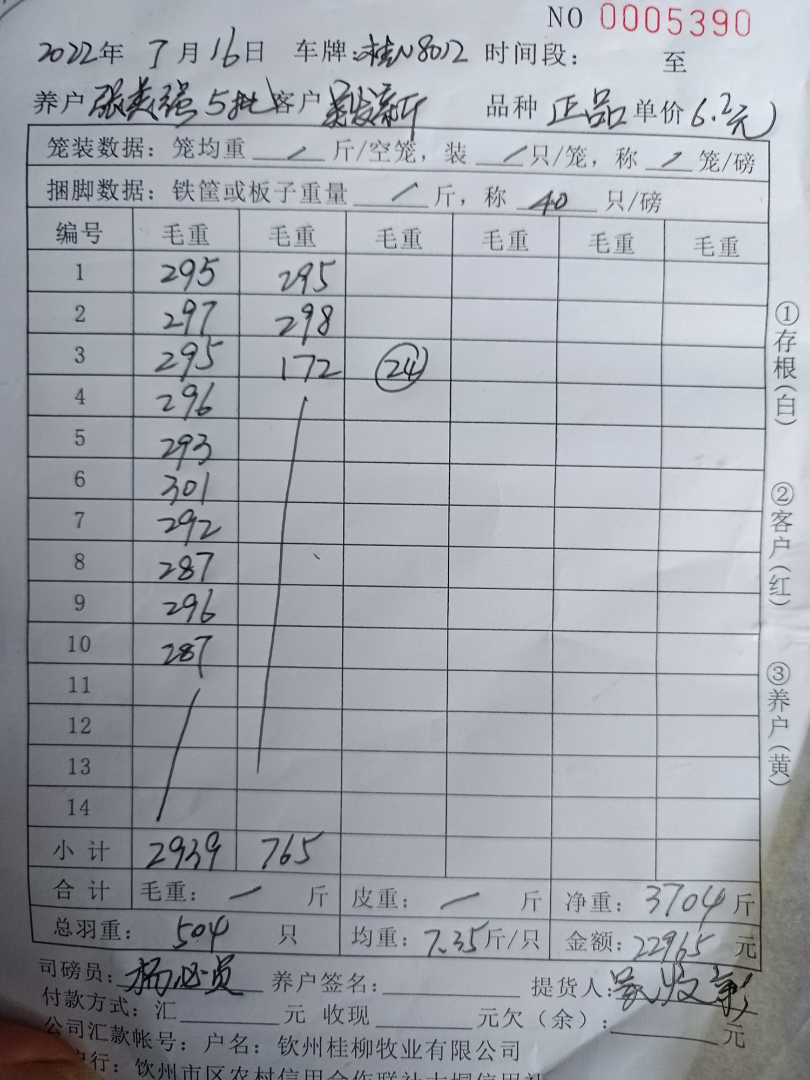 NO 0005390
2022年 7月16日 车牌:桂N8012 时间段: 至
养户 张美强 5批 客户 品种 正品 单价 6.2元
笼装数据: 笼均重 / 斤/空笼, 装 / 只/笼, 称 / 笼/磅
捆脚数据: 铁筐或板子重量 / 斤, 称 40 只/磅
编号 毛重 毛重 毛重 毛重 毛重 毛重
1 295 295
2 297 298
3 295 172 24
4 296
5 293
6 301
7 292
8 287
9 296
10 287
11
12
13
14
小计 2939 765
合计 毛重: / 斤 皮重: / 斤 净重: 3704 斤
总羽重: 504 只 均重: 7.35 斤/只 金额: 22965 元
司磅员: 养户签名: 提货人:
付款方式: 汇 元 收现 元欠(余): 元
公司汇款帐号: 户名: 钦州桂柳牧业有限公司
户行: 钦州市区农村信用合作联社大垌信用社
①存根(白)
②客户(红)
③养户(黄)